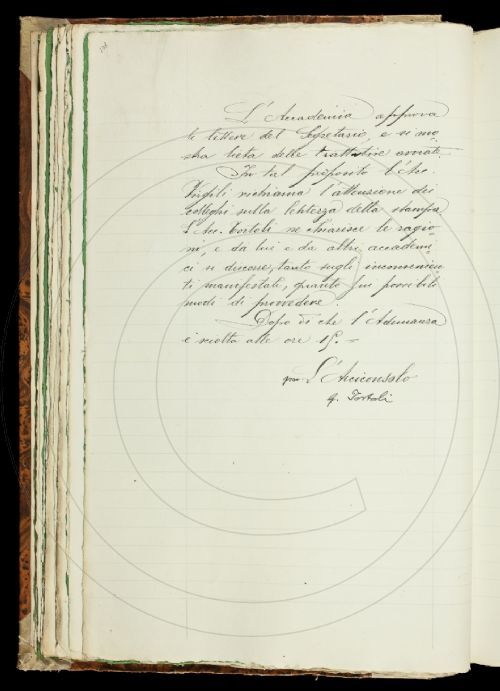 L'Accademia approva
le lettere del Segretario, e si mo
stra lieta delle trattative avviate.
In tal proposito l'Acc.
Rigutini richiama l'attenzione dei
colleghi sulla lentezza della stampa
L'Acc. Tortoli ne chiarisce le ragio-
ni, e da lui e da altri accademi-
ci si discorre, tanto sugli inconvenien
ti manifestati, quanto sui possibili
modi di provvedere.
Dopo di che l'Adunanza
è sciolta alle ore 15. =
L'Arciconsolo
G. Tortoli